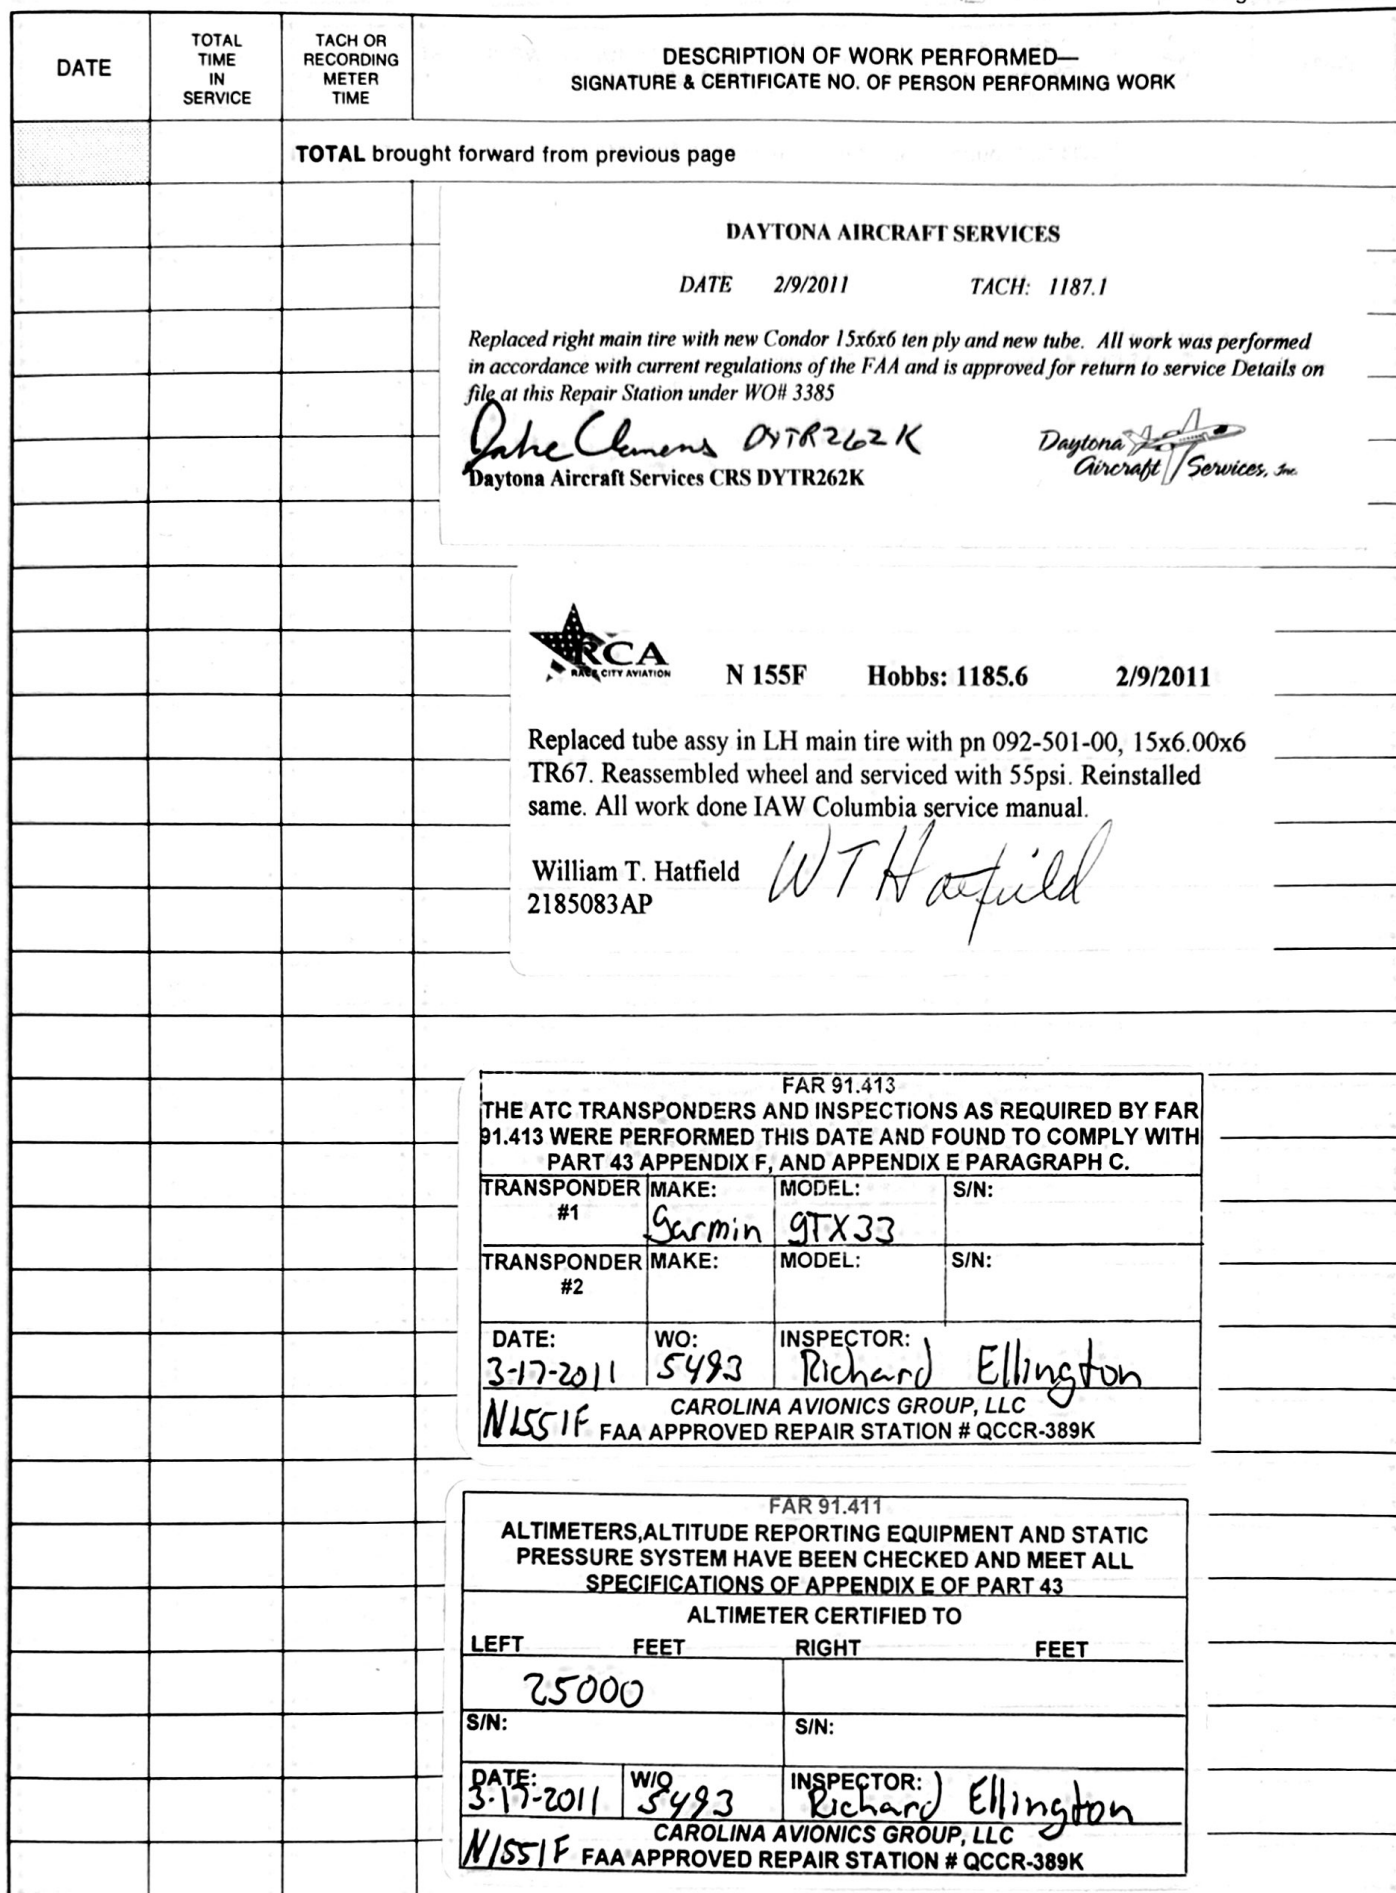 DATE
TOTAL
TIME
IN
SERVICE
TACH OR
RECORDING
METER
TIME
DESCRIPTION OF WORK PERFORMED—
SIGNATURE & CERTIFICATE NO. OF PERSON PERFORMING WORK
TOTAL brought forward from previous page
DAYTONA AIRCRAFT SERVICES
DATE 2/9/2011 TACH: 1187.1
Replaced right main tire with new Condor 15x6x6 ten ply and new tube. All work was performed
in accordance with current regulations of the FAA and is approved for return to service Details on
file at this Repair Station under WO# 3385
Clemens DYTR262K
Daytona Aircraft Services CRS DYTR262K
Daytona
Aircraft Services, Inc.
RCA
RACE CITY AVIATION
N 155F Hobbs: 1185.6 2/9/2011
Replaced tube assy in LH main tire with pn 092-501-00, 15x6.00x6
TR67. Reassembled wheel and serviced with 55psi. Reinstalled
same. All work done IAW Columbia service manual.
William T. Hatfield WT Hatfield
2185083AP
FAR 91.413
THE ATC TRANSPONDERS AND INSPECTIONS AS REQUIRED BY FAR
91.413 WERE PERFORMED THIS DATE AND FOUND TO COMPLY WITH
PART 43 APPENDIX F, AND APPENDIX E PARAGRAPH C.
TRANSPONDER MAKE: MODEL: S/N:
#1 Garmin GTX33
TRANSPONDER MAKE: MODEL: S/N:
#2
DATE: WO: INSPECTOR:
3-17-2011 5493 Richard Ellington
CAROLINA AVIONICS GROUP, LLC
N1551F FAA APPROVED REPAIR STATION # QCCR-389K
FAR 91.411
ALTIMETERS,ALTITUDE REPORTING EQUIPMENT AND STATIC
PRESSURE SYSTEM HAVE BEEN CHECKED AND MEET ALL
SPECIFICATIONS OF APPENDIX E OF PART 43
ALTIMETER CERTIFIED TO
LEFT FEET RIGHT FEET
25000
S/N: S/N:
DATE: W/O INSPECTOR:
3-17-2011 5493 Richard Ellington
CAROLINA AVIONICS GROUP, LLC
N1551F FAA APPROVED REPAIR STATION # QCCR-389K